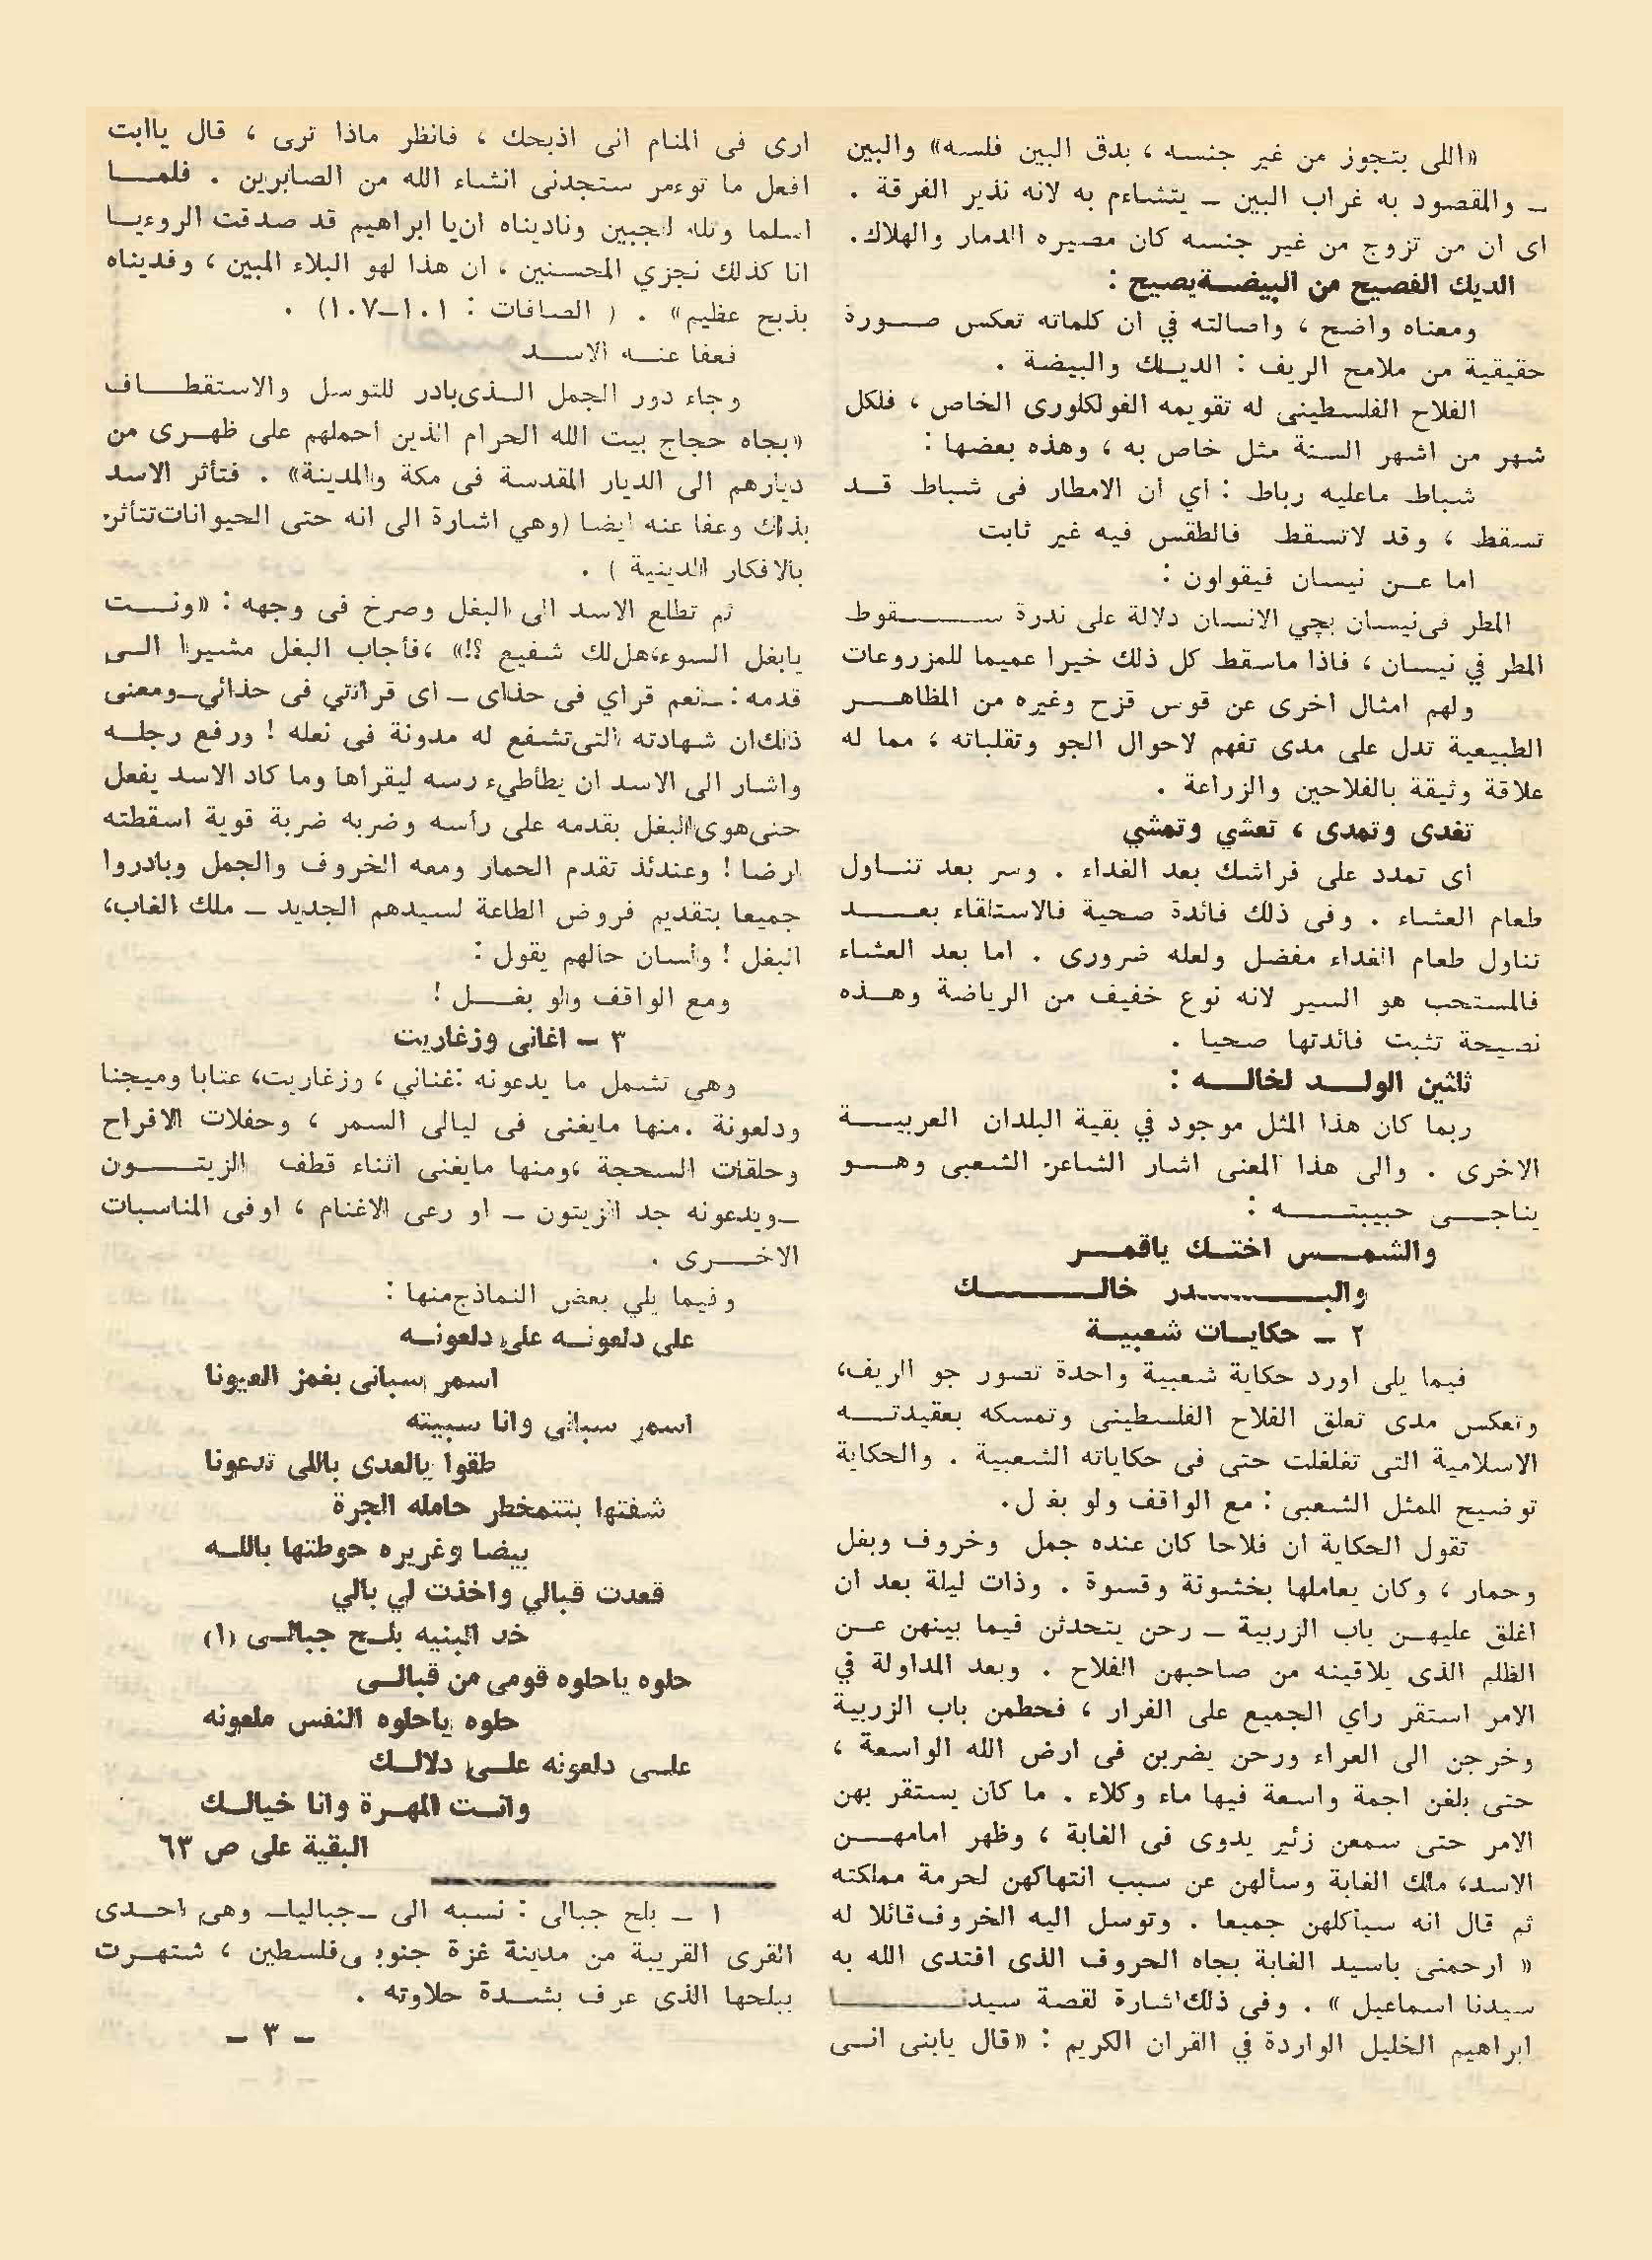 «اللى بتجوز من غير جنسه ، بدق البين فلسه» والبين
ـ والمقصود به غراب البين ـ يتشاءم به لانه نذير الفرقة .
اى ان من تزوج من غير جنسه كان مصيره الدمار والهلاك.
الديك الفصيح من البيضة يصيح :
ومعناه واضح ، واصالته في ان كلماته تعكس صورة
حقيقية من ملامح الريف : الديك والبيضة .
الفلاح الفلسطينى له تقويمه الفولكلورى الخاص ، فلكل
شهر من اشهر السنة مثل خاص به ، وهذه بعضها :
شباط ماعليه رباط : اي ان الامطار فى شباط قد
تسقط ، وقد لاتسقط فالطقس فيه غير ثابت
اما عن نيسان فيقولون :
المطر فى نيسان بجي الانسان دلالة على ندرة سقوط
المطر في نيسان ، فاذا ماسقط كل ذلك خيرا عميما للمزروعات
ولهم امثال اخرى عن قوس قزح وغيره من المظاهر
الطبيعية تدل على مدى تفهم لاحوال الجو وتقلباته ، مما له
علاقة وثيقة بالفلاحين والزراعة .
تغدى وتمدى ، تعشي وتمشي
اى تمدد على فراشك بعد الغداء . وسر بعد تناول
طعام العشاء . وفى ذلك فائدة صحية فالاستلقاء بعد
تناول طعام الغداء مفضل ولعله ضرورى . اما بعد العشاء
فالمستحب هو السير لانه نوع خفيف من الرياضة وهذه
نصيحة تثبت فائدتها صحيا .
ثلثين الولد لخاله :
ربما كان هذا المثل موجود في بقية البلدان العربية
الاخرى . والى هذا المعنى اشار الشاعر الشعبى وهو
يناجى حبيبته :
والشمس اختك ياقمر
والبدر خالك
٢ ـ حكايات شعبية
فيما يلى اورد حكاية شعبية واحدة تصور جو الريف،
وتعكس مدى تعلق الفلاح الفلسطينى وتمسكه بعقيدته
الاسلامية التى تغلغلت حتى فى حكاياته الشعبية . والحكاية
توضيح للمثل الشعبى : مع الواقف ولو بغل.
تقول الحكاية ان فلاحا كان عنده جمل وخروف وبغل
وحمار ، وكان يعاملها بخشونة وقسوة . وذات ليلة بعد ان
اغلق عليهن باب الزريبة ـ رحن يتحدثن فيما بينهن عن
الظلم الذى يلاقينه من صاحبهن الفلاح . وبعد المداولة في
الامر استقر راي الجميع على الفرار ، فحطمن باب الزريبة
وخرجن الى العراء ورحن يضربن فى ارض الله الواسعة ،
حتى بلغن اجمة واسعة فيها ماء وكلاء . ما كان يستقر بهن
الامر حتى سمعن زئير يدوى فى الغابة ، وظهر امامهن
الاسد، ملك الغابة وسألهن عن سبب انتهاكهن لحرمة مملكته
ثم قال انه سيأكلهن جميعا . وتوسل اليه الخروف قائلا له
« ارحمنى ياسيد الغابة بجاه الحروف الذى افتدى الله به
سيدنا اسماعيل » . وفى ذلك اشارة لقصة سيدنا
ابراهيم الخليل الواردة في القران الكريم : «قال يابنى انى
ارى فى المنام انى اذبحك ، فانظر ماذا ترى ، قال ياابت
افعل ما توءمر ستجدنى انشاء الله من الصابرين . فلما
اسلما وتله لجبين وناديناه ان يا ابراهيم قد صدقت الروءيا
انا كذلك نجزي المحسنين ، ان هذا لهو البلاء المبين ، وفديناه
بذبح عظيم» . ( الصافات : ١٠١ـ١٠٧) .
فعفا عنه الاسد
وجاء دور الجمل الذى بادر للتوسل والاستقطاف
«بجاه حجاج بيت الله الحرام الذين احملهم على ظهرى من
ديارهم الى الديار المقدسة فى مكة والمدينة» . فتأثر الاسد
بذلك وعفا عنه ايضا (وهي اشارة الى انه حتى الحيوانات تتأثر
بالافكار الدينية ) .
ثم تطلع الاسد الى البغل وصرخ فى وجهه : «ونت
يابغل السوء، هل لك شفيع ؟!» ، فأجاب البغل مشيرا الى
قدمه : ـ نعم قراي فى حذاى ـ اى قرائتي فى حذائي ـ ومعنى
ذلك ان شهادته التى تشفع له مدونة فى نعله ! ورفع رجله
واشار الى الاسد ان يطأطيء رسه ليقرأها وما كاد الاسد يفعل
حتى هوى البغل بقدمه على رأسه وضربه ضربة قوية اسقطته
ارضا ! وعندئذ تقدم الحمار ومعه الخروف والجمل وبادروا
جميعا بتقديم فروض الطاعة لسيدهم الجديد ـ ملك الغاب،
البغل ! ولسان حالهم يقول :
ومع الواقف ولو بغل !
٣ ـ اغانى وزغاريت
وهي تشمل ما يدعونه : غناني ، وزغاريت، عتابا وميجنا
ودلعونة . منها مايغنى فى ليالى السمر ، وحفلات الافراح
وحلقات السحجة ، ومنها مايغنى اثناء قطف الزيتون
ـ ويدعونه جد الزيتون ـ او رعى الاغنام ، اوفى المناسبات
الاخرى .
وفيما يلي بعض النماذج منها :
على دلعونه على دلعونه
اسمر سبانى بغمز العيونا
اسمر سبانى وانا سبيته
طقوا يالعدى باللى تدعونا
شفتها بتتمخطر حامله الجرة
بيضا وغريره حوطتها بالله
قعدت قبالي واخذت لي بالي
خد البنيه بلح جبالى (١)
حلوه ياحلوه قومى من قبالى
حلوه ياحلوه النفس ملعونه
على دلعونه على دلالك
وانت المهرة وانا خيالك
البقية على ص ٦٣
١ ـ بلح جبالى : نسبه الى ـ جباليا ـ وهى احدى
القرى القريبة من مدينة غزة جنوبى فلسطين ، شتهرت
ببلحها الذى عرف بشدة حلاوته .
ـ ٣ ـ